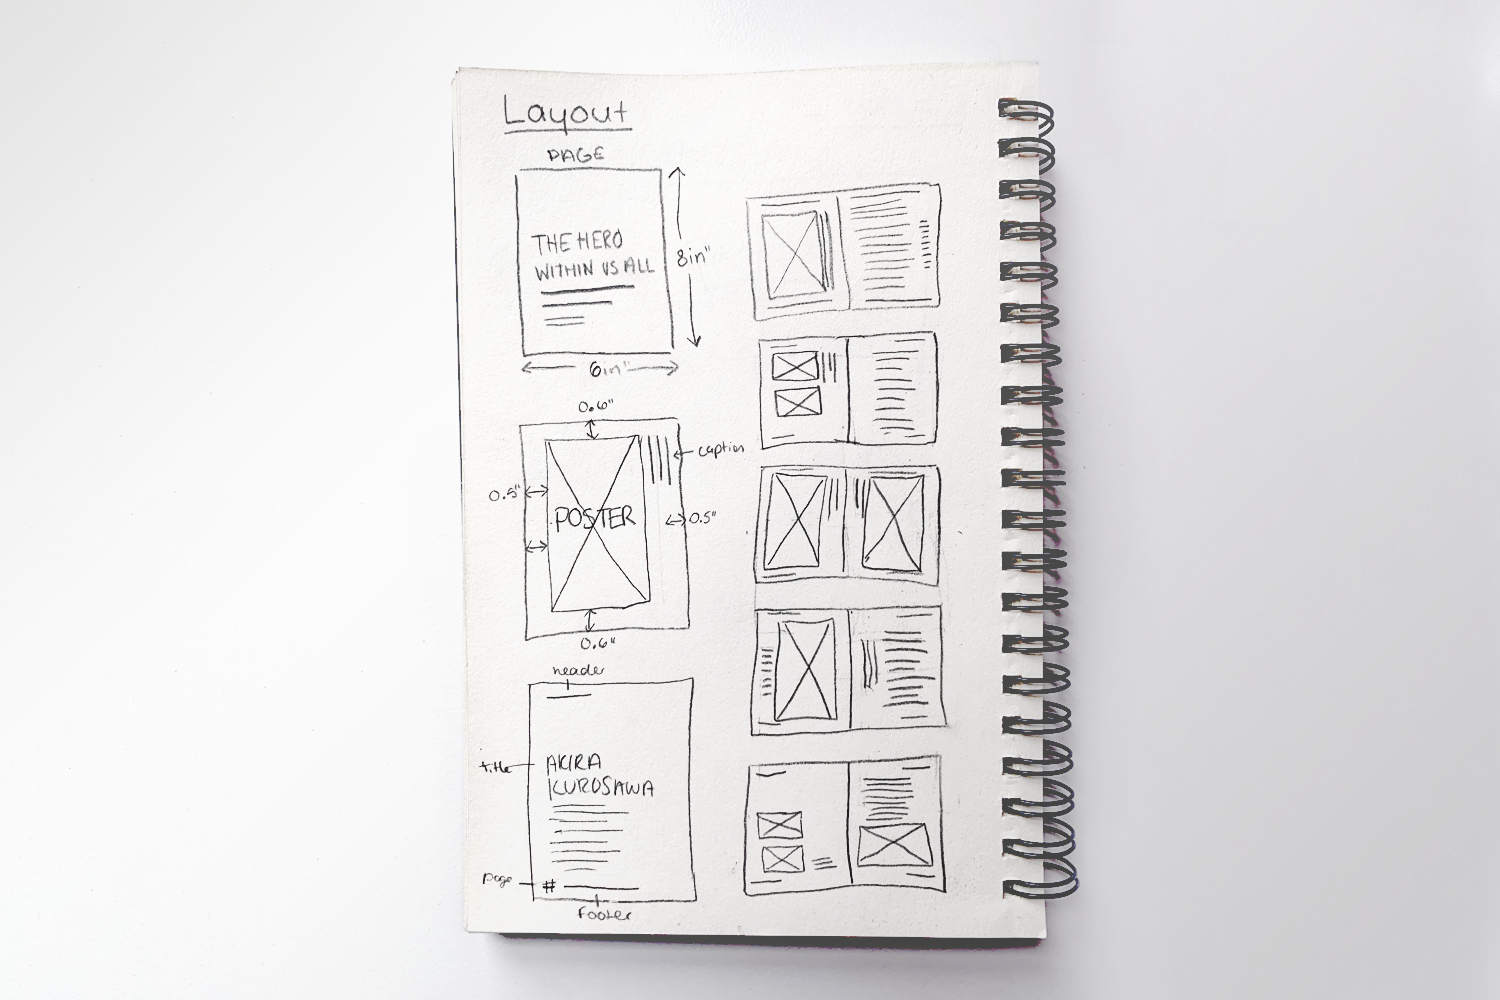 Layout
PAGE
THE HERO
WITHIN US ALL
8in"
6in"
0.6"
caption
0.5"
POSTER
0.5"
0.6"
header
title
AKIRA
KUROSAWA
page
#
footer